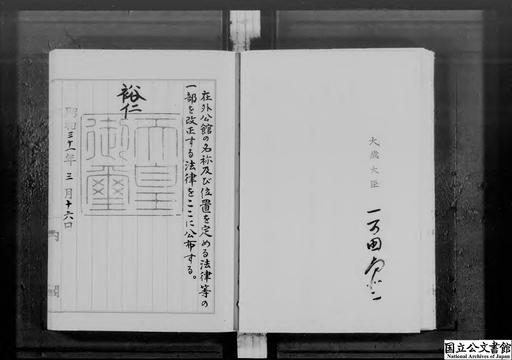 在外公館の名称及び位置を定める法律等の
一部を改正する法律をここに公布する。
裕仁
天皇
御璽
昭和三十一年三月十六日
大蔵大臣
一万田尚登
国立公文書館
National Archives of Japan